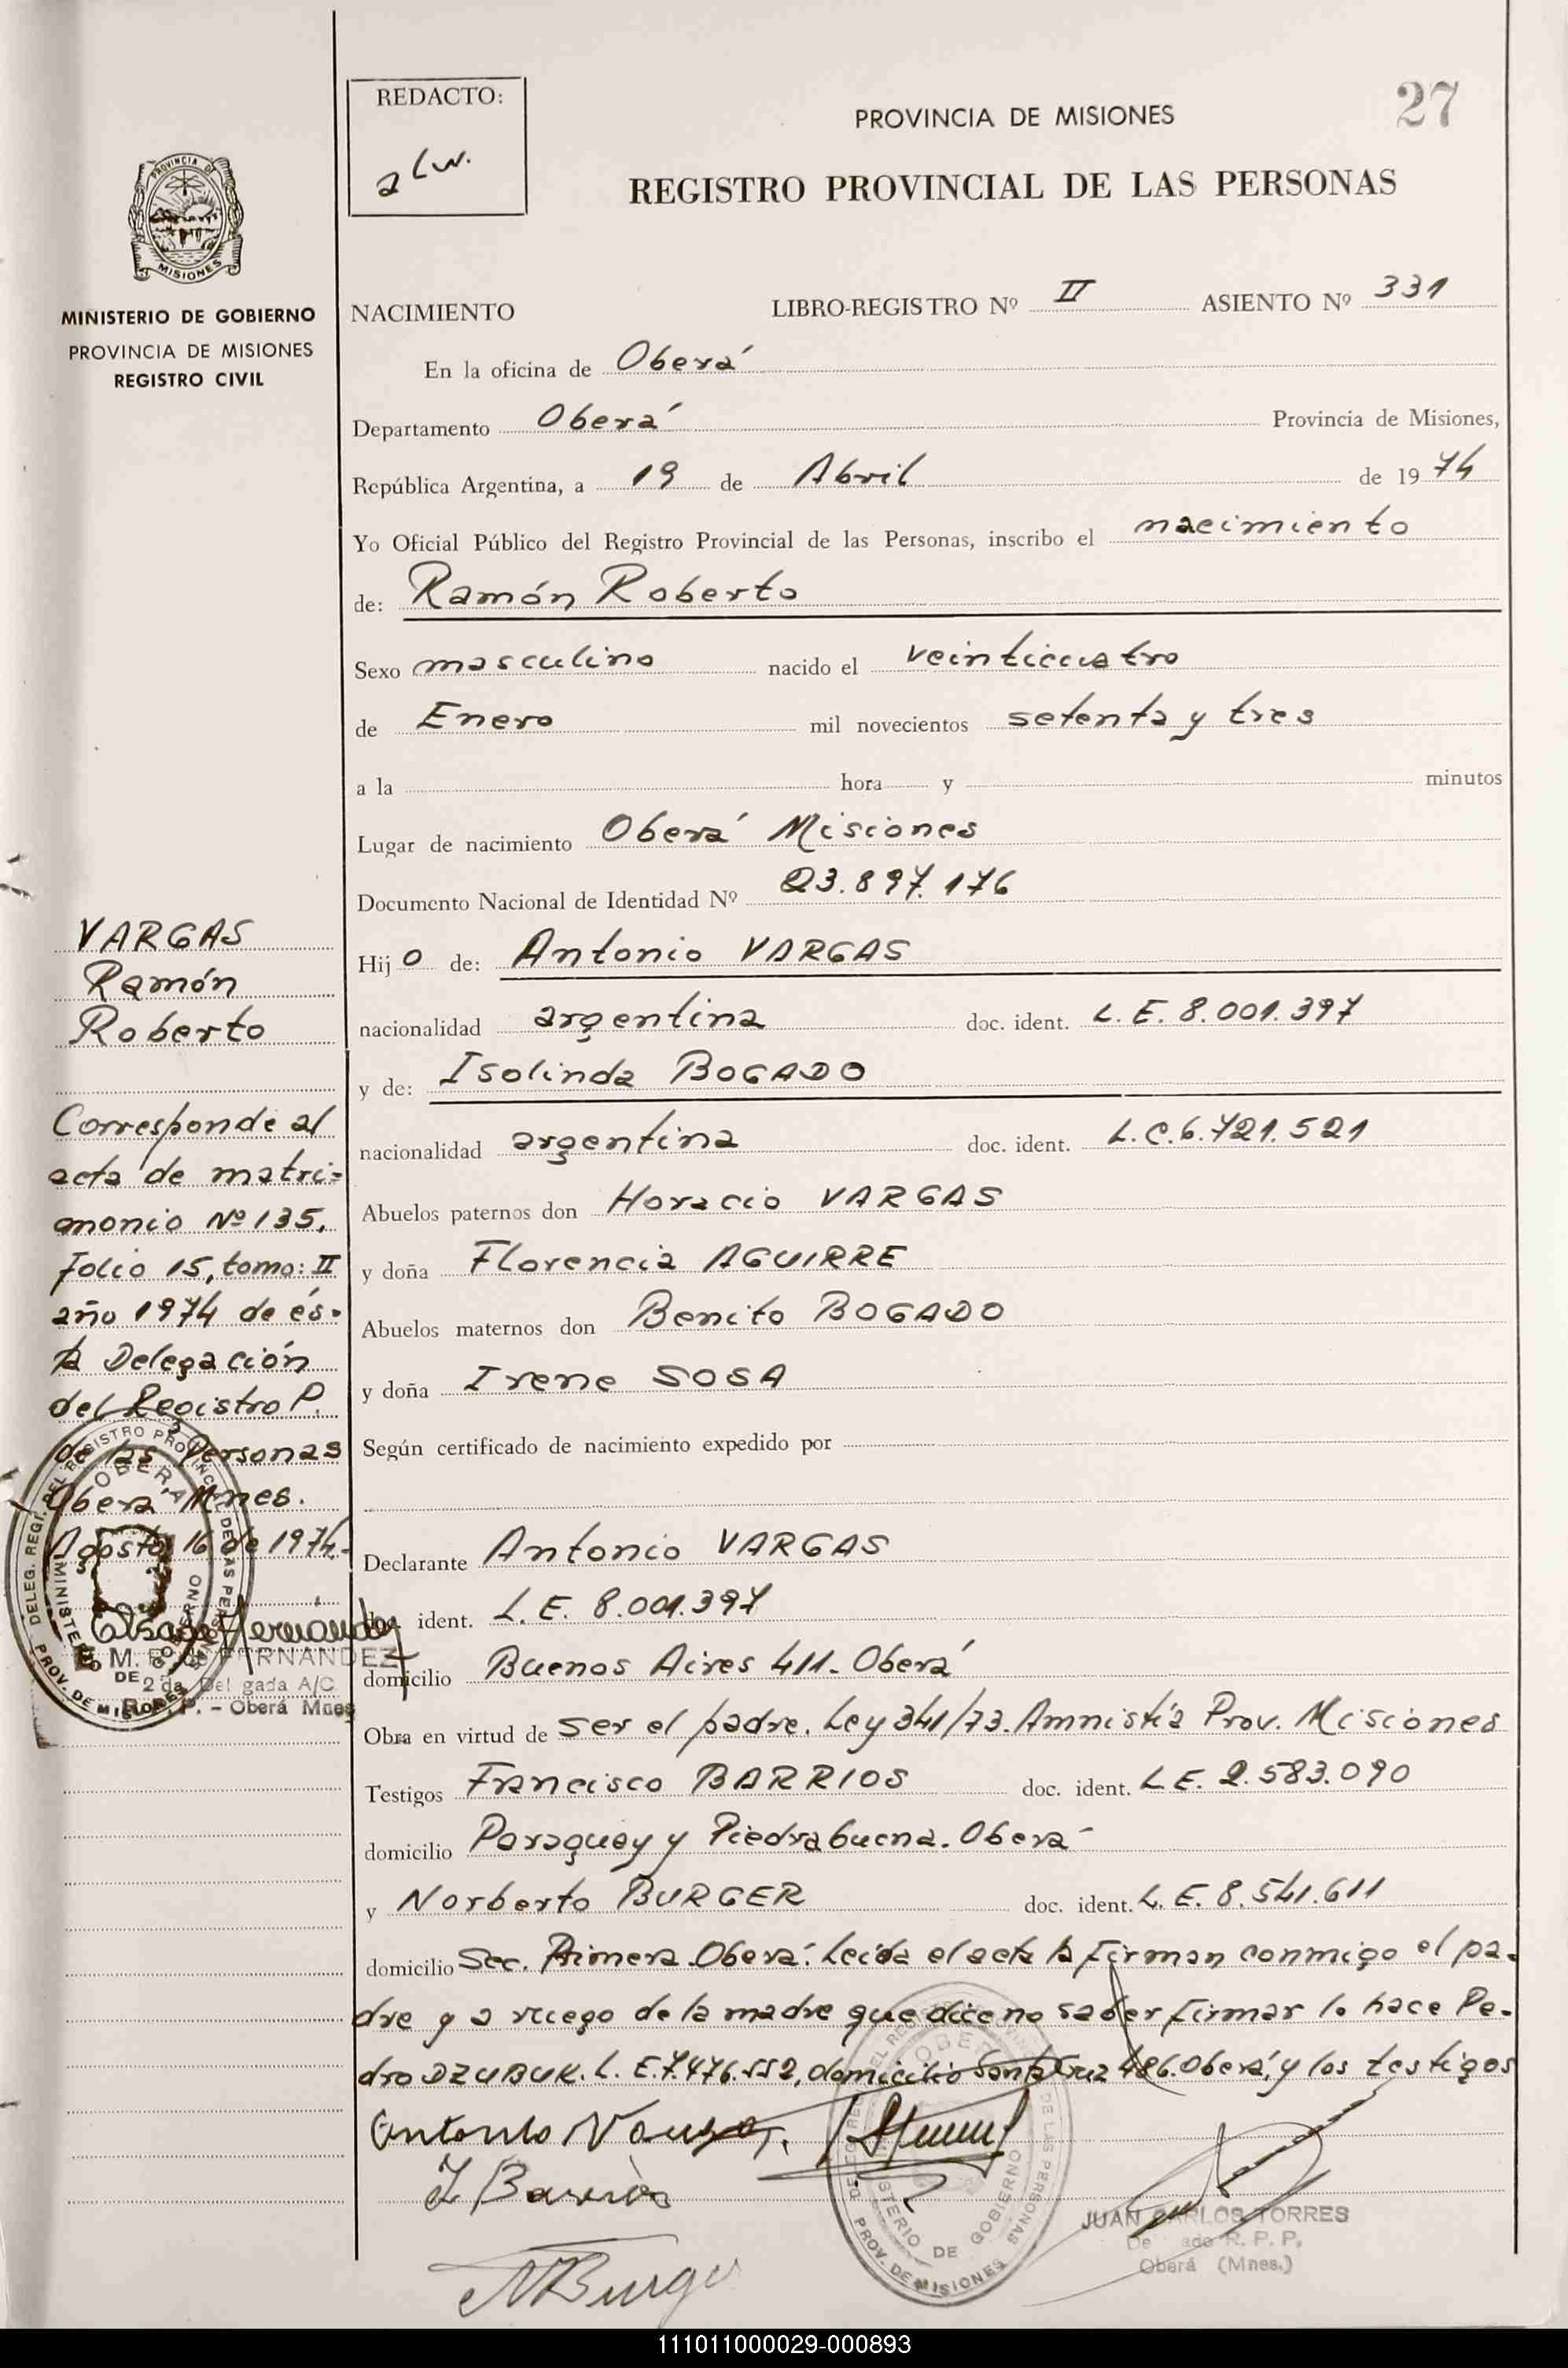 27
REDACTO:
PROVINCIA DE MISIONES
REGISTRO PROVINCIAL DE LAS PERSONAS
PROVINCIA DE
MISIONES
MINISTERIO DE GOBIERNO
PROVINCIA DE MISIONES
REGISTRO CIVIL
NACIMIENTO LIBRO-REGISTRO Nº II ASIENTO Nº 331
En la oficina de Oberá
Departamento Oberá Provincia de Misiones,
República Argentina, a 19 de Abril de 1974
Yo Oficial Público del Registro Provincial de las Personas, inscribo el nacimiento
de: Ramón Roberto
Sexo masculino nacido el veinticuatro
de Enero mil novecientos setenta y tres
a la hora y minutos
Lugar de nacimiento Oberá Misiones
Documento Nacional de Identidad Nº 23.897.176
Hijo de: Antonio VARGAS
nacionalidad argentina doc. ident. L. E. 8.001.397
y de: Isolinda BOGADO
nacionalidad argentina doc. ident. L.C.6.721.521
Abuelos paternos don Horacio VARGAS
y doña Florencia AGUIRRE
Abuelos maternos don Benito BOGADO
y doña Irene SOSA
Según certificado de nacimiento expedido por
Declarante Antonio VARGAS
doc. ident. L. E. 8.001.397
domicilio Buenos Aires 411. Oberá
Obra en virtud de ser el padre. Ley 341/73. Amnistía Prov. Misiones
Testigos Francisco BARRIOS doc. ident. L.E. 2.583.090
domicilio Paraguay y Piedrabuena. Oberá
y Norberto BURGER doc. ident. L. E. 8.541.611
domicilio Sec. Primera. Oberá. Leída el acta la firman conmigo el pa-
dre y a ruego de la madre que dice no saber firmar lo hace Pe-
dro DZUBUK. L. E.7.476.552, domicilio Santa Cruz 486. Oberá, y los testigos
Antonio Vargas.
F Barrios
N Burger
JUAN CARLOS TORRES
R. P. P.
Oberá (Mnes.)
VARGAS
Ramón
Roberto
Corresponde al
acta de matri-
monio Nº 135,
folio 15, tomo: II
año 1974 de és-
ta Delegación
del Registro P.
de las Personas
Oberá Mnes.
Agosto, 16 de 1974.
DELEG. REGI. DEL REGISTRO PROVINCIAL DE LAS PERSONAS
OBERA
MINISTERIO DE GOBIERNO
PROV. DE MISIONES
FERNANDEZ
2 da. Delegada A/C
R. P. P. - Oberá Mnes
MINISTERIO DE GOBIERNO
PROV. DE MISIONES
111011000029-000893